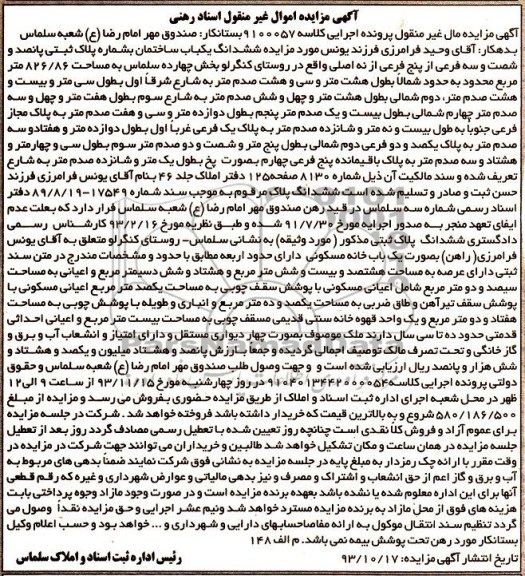 آگهی مزایده اموال غیر منقول اسناد رهنی
آگهی مزایده مال غیر منقول پرونده اجرایی کلاسه ۹۱۰۰۰۵۷ بستانکار: صندوق مهر امام رضا (ع) شعبه سلماس
بدهکار: آقای وحید فرامرزی فرزند یونس مورد مزایده ششدانگ یکباب ساختمان بشماره پلاک ثبتی پانصد و
شصت و سه فرعی از پنج فرعی از نه اصلی واقع در روستای کنگرلو بخش چهارده سلماس به مساحت ۸۲۶/۸۶ متر
مربع محدود به حدود شمالاً بطول هشت متر و سی و هشت صدم متر به شارع شرقاً اول بطول سی متر و بیست و
هشت صدم متر، دوم شمالی بطول هشت متر و چهل و شش صدم متر به شارع سوم بطول هفت متر و چهل و سه
صدم متر چهارم شمالی بطول بیست و یک صدم متر پنجم بطول دوازده متر و سی و هفت صدم متر به پلاک مجاز
فرعی جنوبا به طول بیست و نه متر و شانزده صدم متر به پلاک یک فرعی غرباً اول بطول دوازده متر و هفتاد و سه
صدم متر به پلاک یکصد و دو فرعی دوم شمالی بطول پنج متر و شصت و دو صدم متر سوم بطول سی و چهار متر و
هشتاد و سه صدم متر به پلاک باقیمانده پنج فرعی چهارم بصورت پخ بطول یک متر و شانزده صدم متر به شارع
تعریف شده و سند مالکیت آن ذیل شماره ۸۱۳۰ صفحه ۱۲۵ دفتر املاک جلد ۴۶ بنام آقای یونس فرامرزی فرزند
حسن ثبت و صادر و تسلیم شده است ششدانگ پلاک مرقوم به موجب سند شماره ۱۷۵۴۹-۸۹/۸/۱۹ دفتر
اسناد رسمی شماره سه سلماس در قید رهن صندوق مهر امام رضا (ع) شعبه سلماس قرار دارد که بعلت عدم
ایفای تعهد منجر به صدور اجرایه مورخ ۹۱/۷/۳ شده و طبق نظریه مورخ ۹۳/۲/۱۶ کارشناس رسمی
دادگستری ششدانگ پلاک ثبتی مذکور (مورد وثیقه) به نشانی سلماس– روستای کنگرلو متعلق به آقای یونس
فرامرزی( راهن) بصورت یک باب خانه مسکونی دارای حدود اربعه مطابق با حدود و مشخصات مندرج در متن سند
ثبتی دارای عرصه به مساحت هشتصد و بیست و شش متر مربع و هشتاد و شش دسیمتر مربع و اعیانی به مساحت
سیصد و دو متر مربع شامل اعیانی مسکونی با پوشش سقف چوبی به مساحت یکصد متر مربع اعیانی مسکونی با
پوشش سقف تیرآهن و طاق ضربی به مساحت یکصد و ده متر مربع و انباری و طویله با پوشش چوبی به مساحت
هفتاد و دو متر مربع و یک واحد قهوه خانه سنتی قدیمی مسقف چوبی به مساحت بیست متر مربع و اعیانی احداثی
قدمتی حدود ده تا سی سال دارند ملک موصوف بصورت چهار دیواری مستقل و دارای امتیاز و انشعاب آب و برق و
گاز خانگی و تحت تصرف مالک توصیف اجمالی گردیده و جمعاً به ارزش پانصد و هشتاد میلیون و یکصد و هشتاد و
شش هزار و پانصد ریال ارزیابی شده است و و جهت وصول طلب صندوق مهر امام رضا (ع) شعبه سلماس و حقوق
دولتی پرونده اجرایی کلاسه در روز چهارشنبه مورخ ۹۳/۱۱/۱۵ از ساعت ۹ الی ۱۲
ظهر در محل شعبه اجرای اداره ثبت اسناد و املاک از طریق مزایده حضوری بفروش می رسد و مزایده از مبلغ
۵۸۰/۱۸۶/۵۰۰ شروع و به بالاترین قیمت که خریدار داشته باشد فروخته خواهد شد . شرکت در جلسه مزایده
برای عموم آزاد و فروش کلاً نقدی است چنانچه روز تعیین شده با تعطیل رسمی مصادف گردد روز بعد از تعطیل
جلسه مزایده در همان ساعت و مکان تشکیل خواهد شد طالبین و خریداران می توانند جهت شرکت در مزایده در
وقت مقرر با ارائه چک رمزدار به مبلغ پایه در جلسه مزایده به نشانی فوق شرکت نمایند ضمناً بدهی های مربوط به
آب و برق و گاز اعم از حق انشعاب و اشتراک و مصرف و نیز بدهی مالیاتی و عوارض شهرداری و غیره که رقم قطعی
آنها برای این اداره معلوم شده یا نشده باشد بعهده برنده مزایده است و در صورت وجود مازاد وجوه پرداختی بابت
هزینه های فوق از محل مازاد به برنده مزایده مسترد خواهد شد ونیم عشر اجرایی و حق مزایده نقداً وصول می
گردد تنظیم سند انتقال موکول به ارائه مفاصاحسابهای دارایی و شهرداری و ... خواهد بود و حسب اعلام وکیل
بستانکار مورد رهن تحت پوشش بیمه نمی باشد. م الف ۱۴۸
تاریخ انتشار آگهی مزایده: ۹۳/۱۰/۱۷ رئیس اداره ثبت اسناد و املاک سلماس